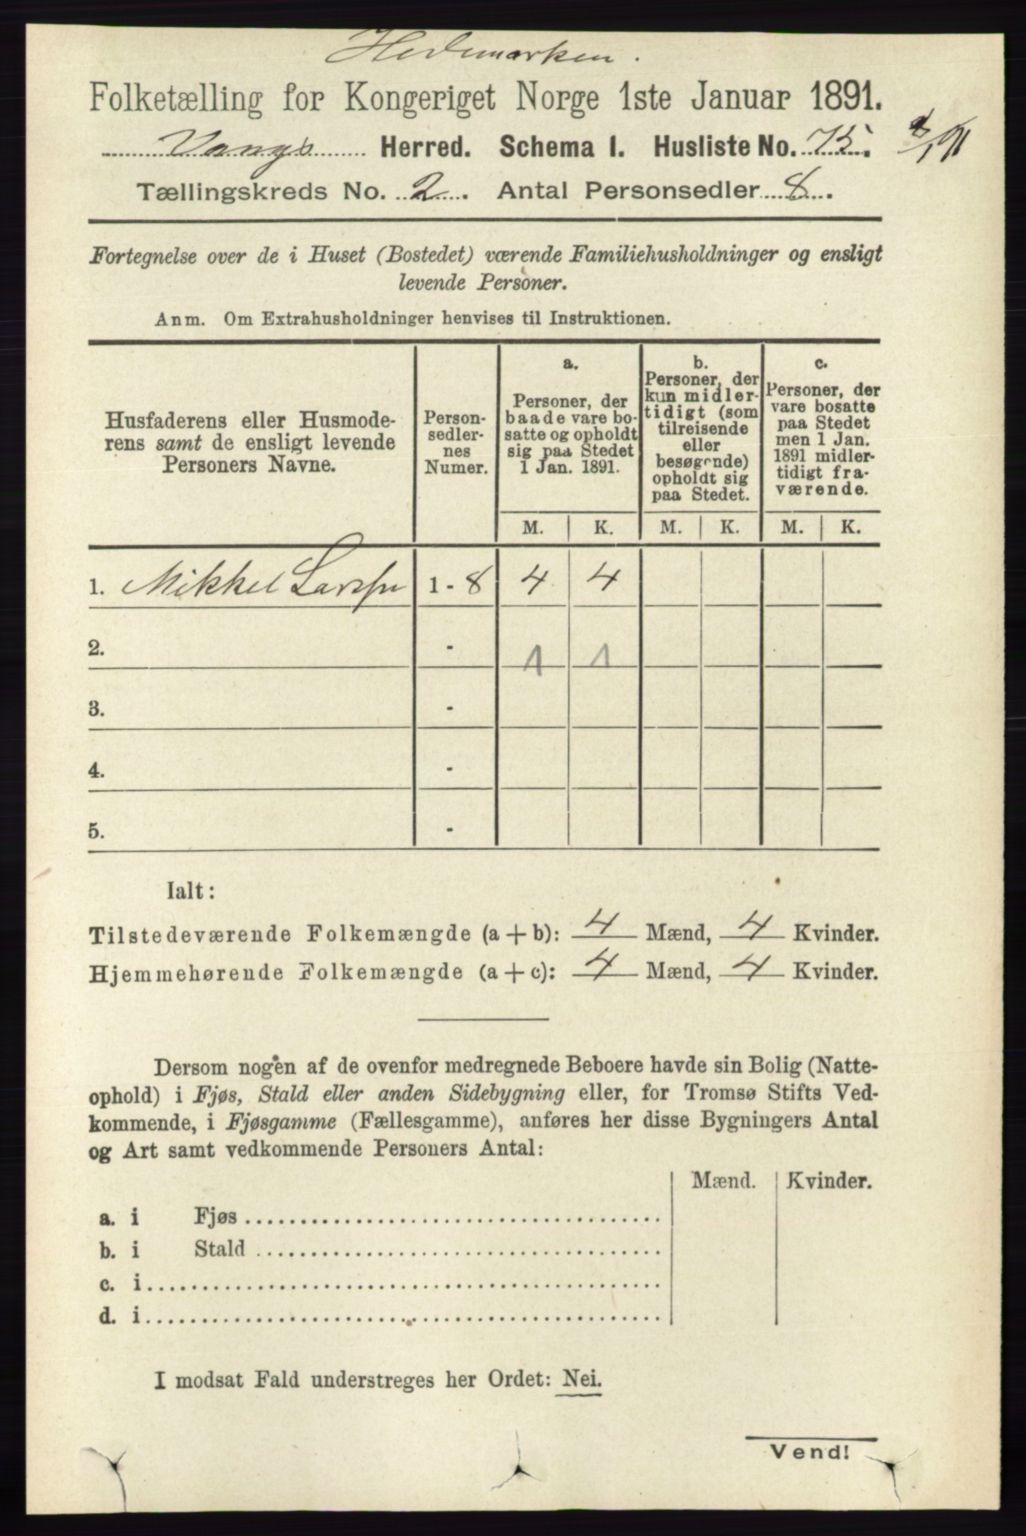 Hedemarken.
Folketælling for Kongeriget Norge 1ste Januar 1891.
Vangs Herred. Schema 1. Husliste No. 75.
Tællingskreds No. 2. Antal Personsedler 8.
Fortegnelse over de i Huset (Bostedet) værende Familiehusholdninger og ensligt
levende Personer.
Anm. Om Extrahusholdninger henvises til Instruktionen.
Husfaderens eller Husmode-
rens samt de ensligt levende
Personers Navne.
Person-
sedler-
nes
Numer.
a.
Personer, der
baade vare bo-
satte og opholdt
sig paa Stedet
1 Jan. 1891.
b.
Personer, der
kun midler-
tidigt (som
tilreisende
eller
besøgende)
opholdt sig
paa Stedet.
c.
Personer, der
vare bosatte
paa Stedet
men 1 Jan.
1891 midler-
tidigt fra-
værende.
M. K. M. K. M. K.
1. Mikkel Larsen 1 - 8 4 4
2. - 1 1
3. -
4. -
5. -
Ialt:
Tilstedeværende Folkemængde (a + b): 4 Mænd, 4 Kvinder.
Hjemmehørende Folkemængde (a + c): 4 Mænd, 4 Kvinder.
Dersom nogen af de ovenfor medregnede Beboere havde sin Bolig (Natte-
ophold) i Fjøs, Stald eller anden Sidebygning eller, for Tromsø Stifts Ved-
kommende, i Fjøsgamme (Fællesgamme), anføres her disse Bygningers Antal
og Art samt vedkommende Personers Antal:
Mænd. Kvinder.
a. i Fjøs
b. i Stald
c. i
d. i
I modsat Fald understreges her Ordet: Nei.
Vend!